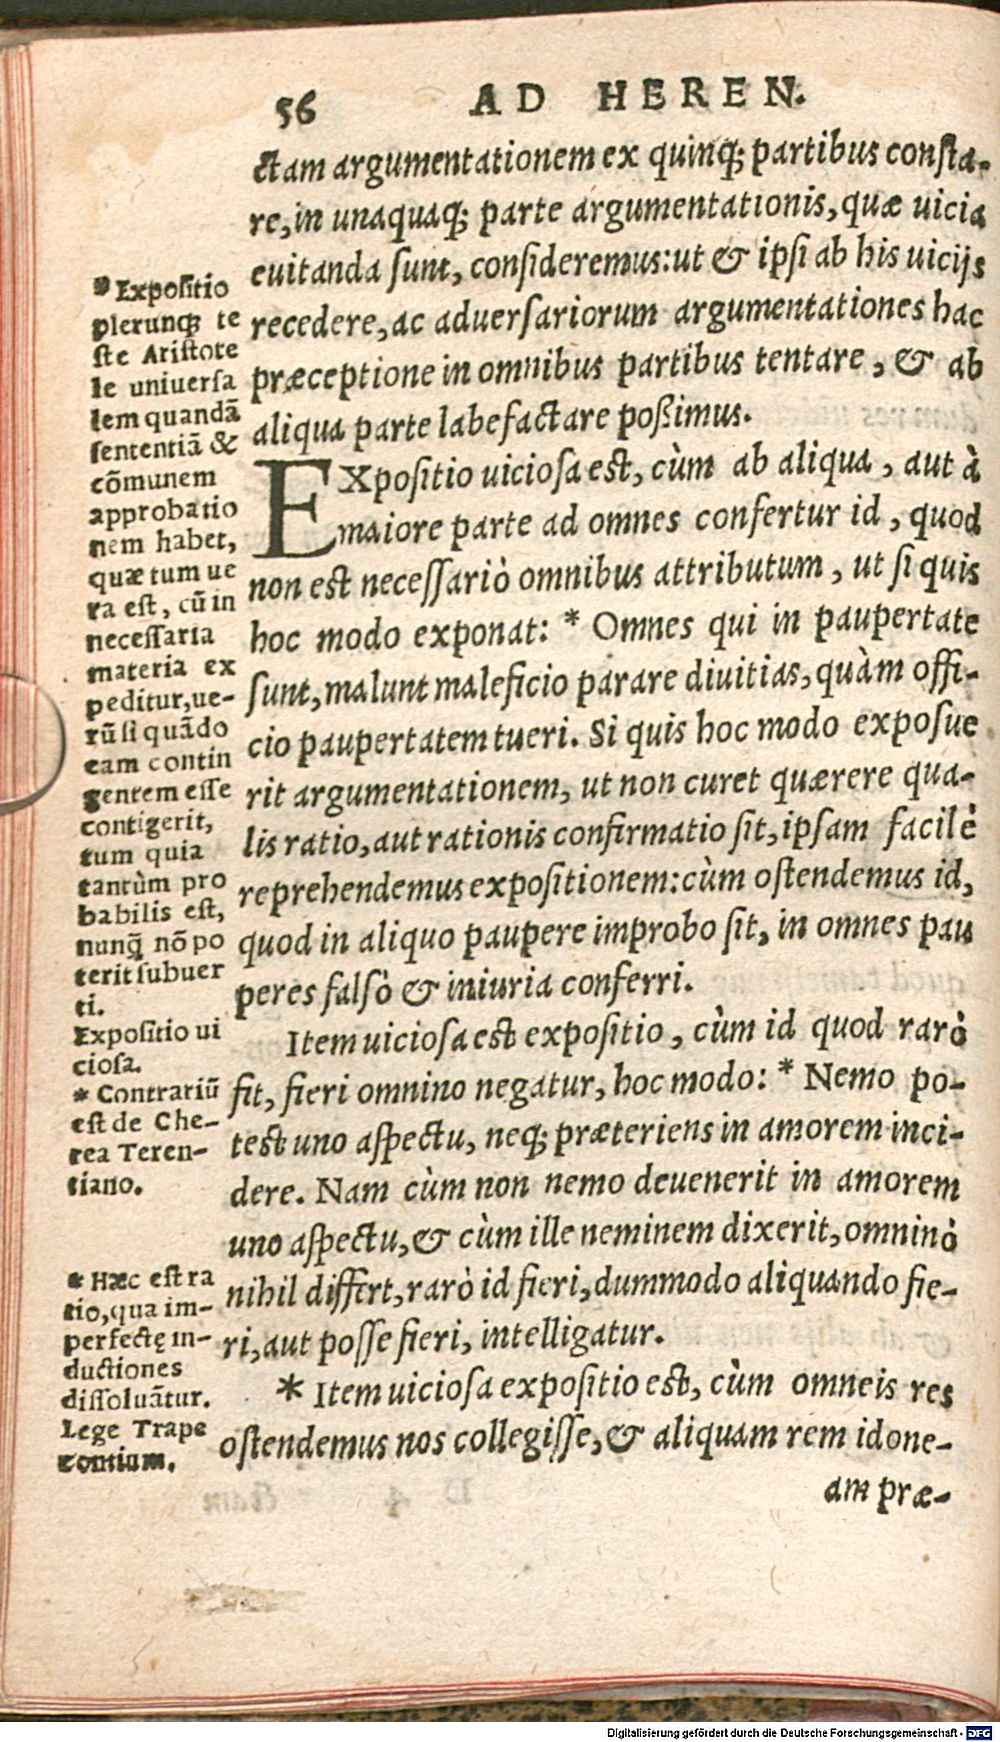 56 AD HEREN.
ctam argumentationem ex quinq; partibus consta-
re, in unaquaq; parte argumentationis, quæ uicia
euitanda sunt, consideremus: ut & ipsi ab his uicijs
recedere, ac aduersariorum argumentationes hac
præceptione in omnibus partibus tentare, & ab
aliqua parte labefactare poßimus.
EXpositio uiciosa est, cùm ab aliqua, aut à
maiore parte ad omnes confertur id, quod
non est necessariò omnibus attributum, ut si quis
hoc modo exponat: * Omnes qui in paupertate
sunt, malunt maleficio parare diuitias, quàm offi-
cio paupertatem tueri. Si quis hoc modo exposue
rit argumentationem, ut non curet quærere qua-
lis ratio, aut rationis confirmatio sit, ipsam facilè
reprehendemus expositionem: cùm ostendemus id,
quod in aliquo paupere improbo sit, in omnes pau
peres falsò & iniuria conferri.
Item uiciosa est expositio, cùm id quod rarò
fit, fieri omnino negatur, hoc modo: * Nemo po-
test uno aspectu, neq; præteriens in amorem inci-
dere. Nam cùm non nemo deuenerit in amorem
uno aspectu, & cùm ille neminem dixerit, omninò
nihil differt, rarò id fieri, dummodo aliquando fie-
ri, aut posse fieri, intelligatur.
* Item uiciosa expositio est, cùm omneis res
ostendemus nos collegisse, & aliquam rem idone-
am præ-
* Expositio
plerunq; te
ste Aristote
le uniuersa
lem quandã
sententiã &
cõmunem
approbatio
nem habet,
quæ tum ue
ra est, cũ in
necessaria
materia ex
peditur, ue-
rũ si quãdo
eam contin
gentem esse
contigerit,
tum quia
tantùm pro
babilis est,
nunq̃ nõ po
terit subuer
ti.
Expositio ui
ciosa.
* Contrariũ
est de Che-
rea Teren-
tiano.
* Hæc est ra
tio, qua im-
perfectę in-
ductiones
dissoluãtur.
Lege Trape
contium.
Digitalisierung gefördert durch die Deutsche Forschungsgemeinschaft - DFG